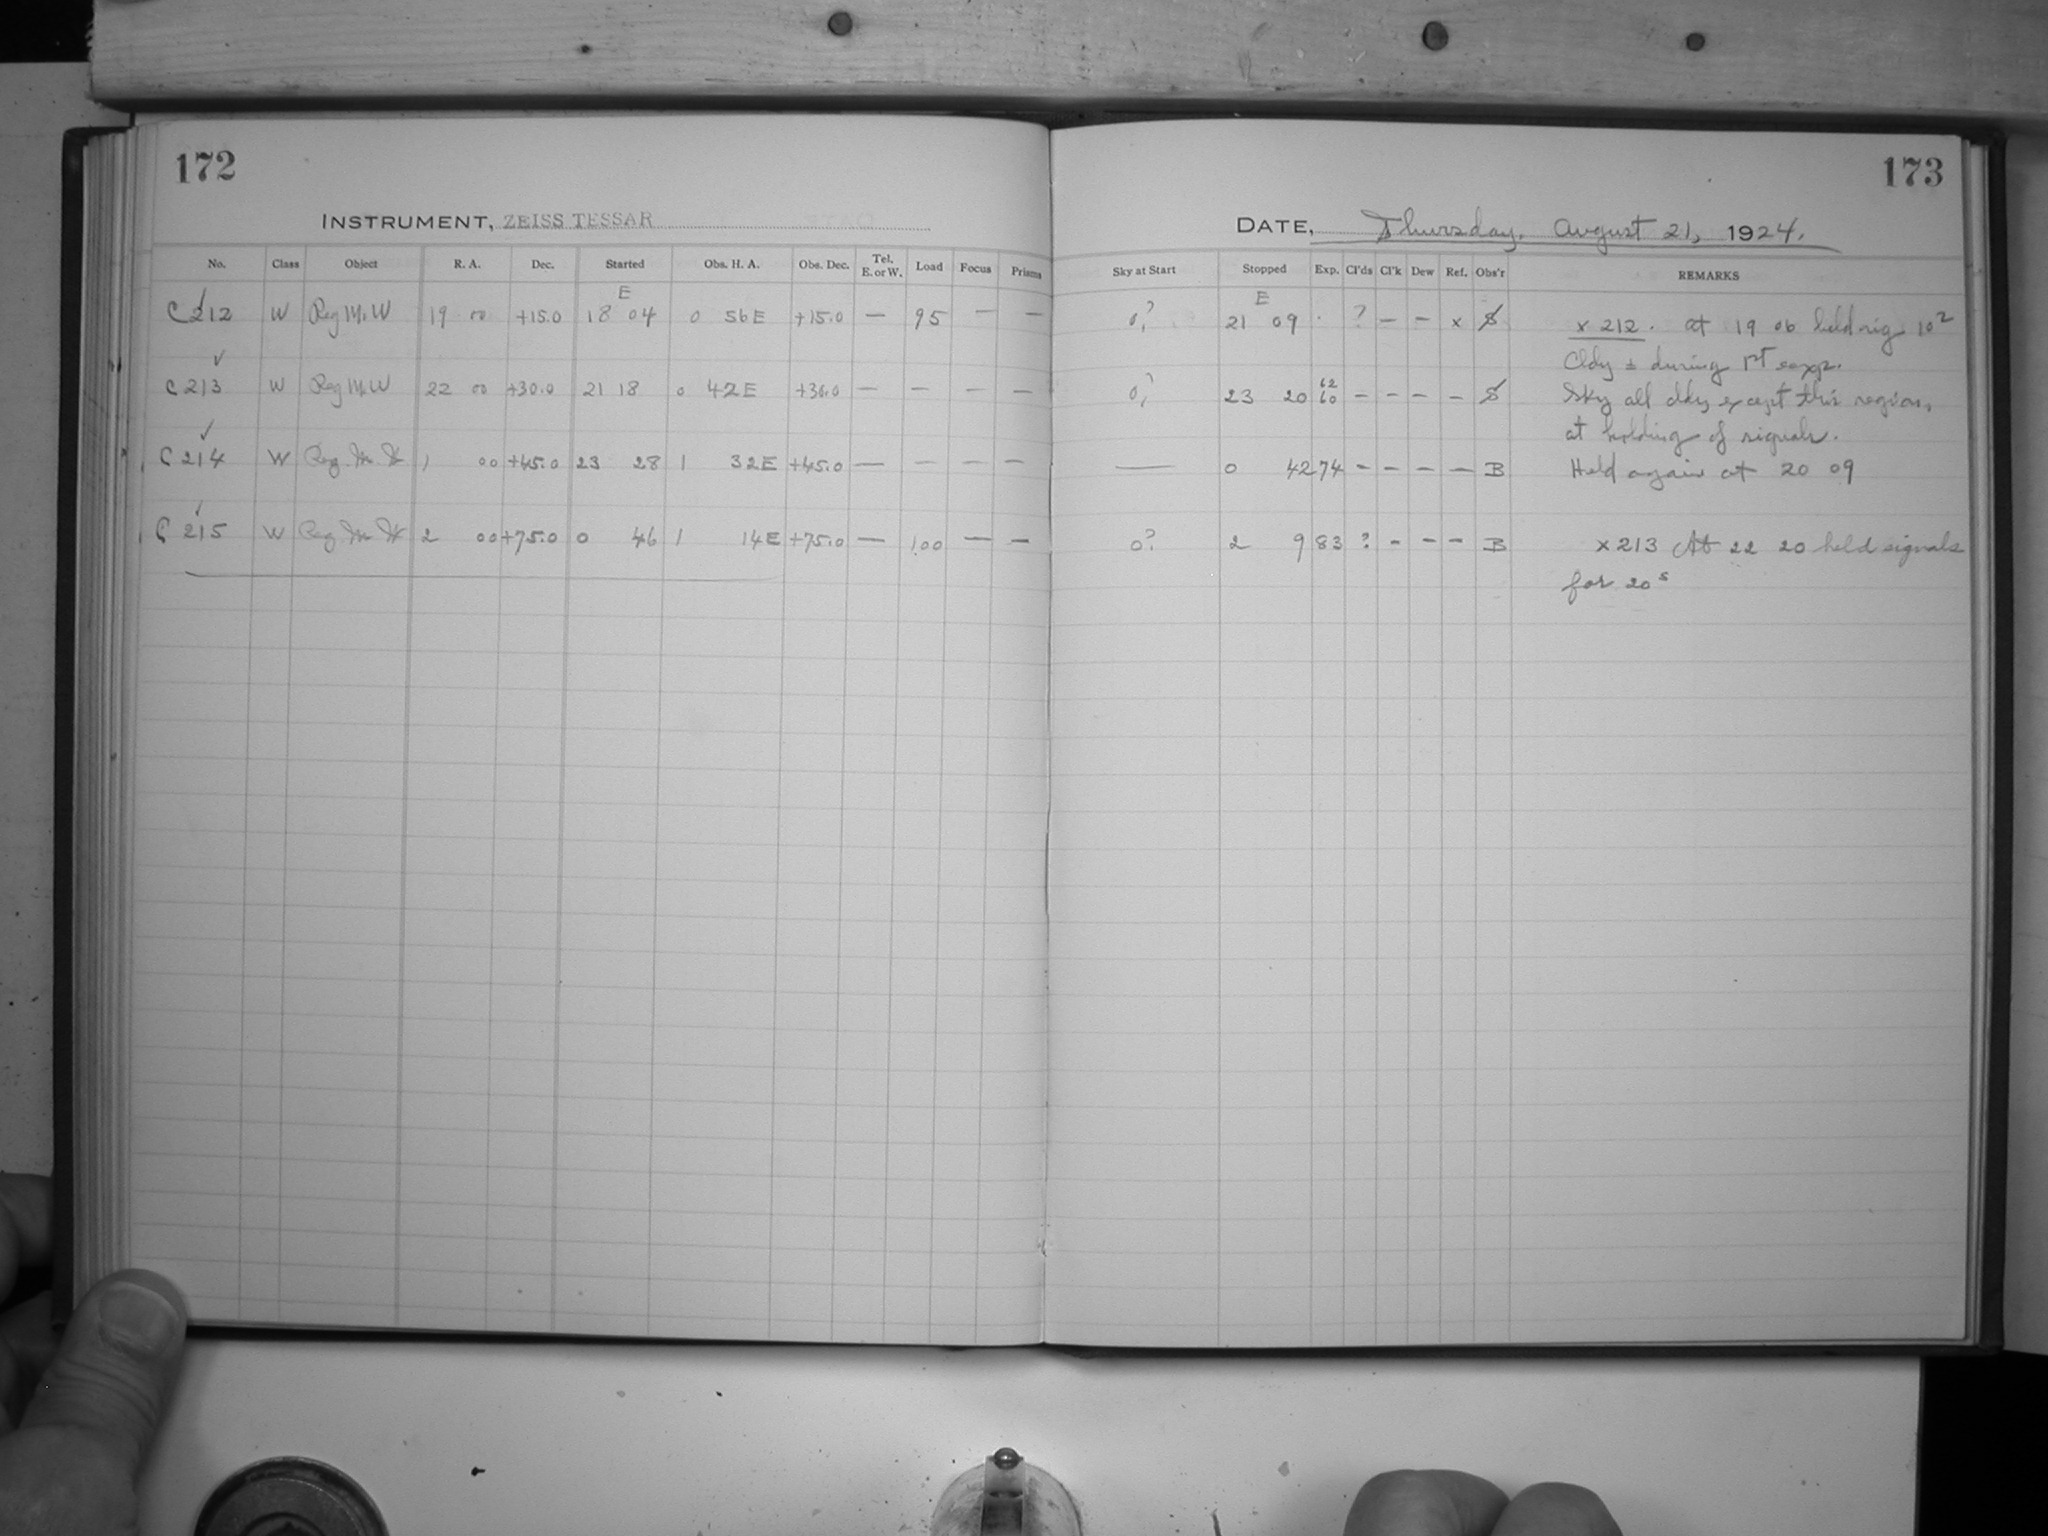 172
INSTRUMENT, ZEISS TESSAR
No. Class Object R. A. Dec. Started Obs. H. A. Obs. Dec. Tel. E. or W. Load Focus Prisms
E
C 212 W Reg M.W 19 00 +15.0 18 04 0 56E +15.0 — 95 — —
C 213 W Reg M.W 22 00 +30.0 21 18 0 42E +30.0 — — — —
C 214 W Reg. M. W 1 00 +45.0 23 28 1 32E +45.0 — — — —
C 215 W Reg. M. W 2 00 +75.0 0 46 1 14E +75.0 — 100 — —
173
DATE, Thursday, August 21, 1924.
Sky at Start Stopped Exp. Cl'ds Cl'k Dew Ref. Obs'r REMARKS
E
0,? 21 09 ? — — x S x 212. at 19 06 held sig 10
Cldy ± during 1st exp.
0,? 23 20 62 60 – – – – S Sky all cldy except this region,
at holding of signals.
— 0 42 74 – – – – B Held again at 20 09
0? 2 9 83 ? - – – B x 213 At 22 20 held signals
for 20 s